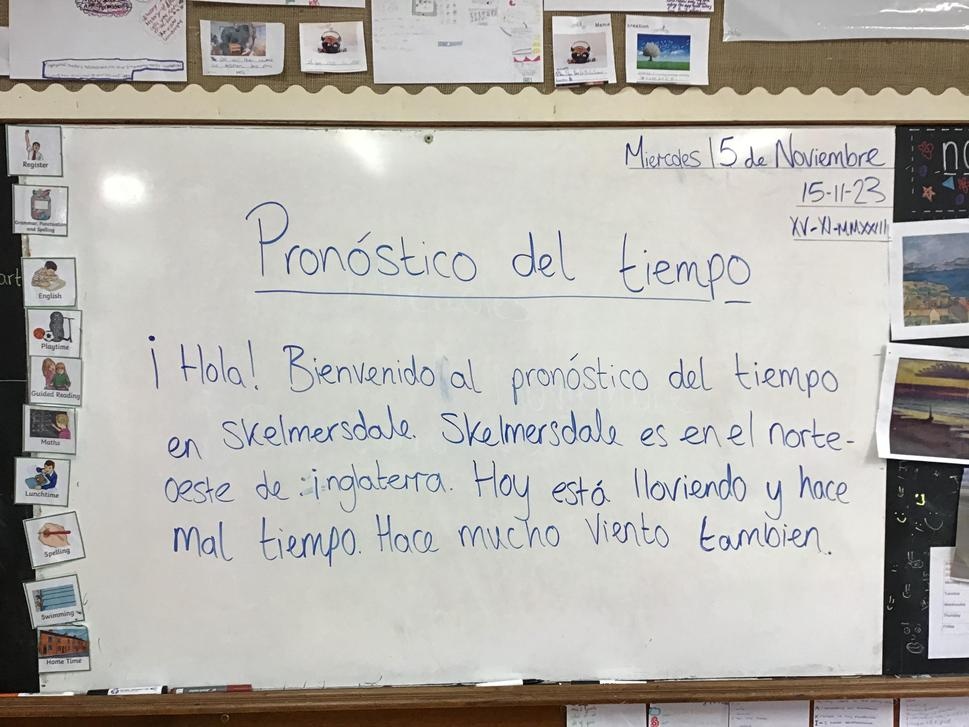 Miercoles 15 de Noviembre
15-11-23
XV-XI-MMXXIII
Pronóstico del tiempo
¡Hola! Bienvenido al pronóstico del tiempo
en Skelmersdale. Skelmersdale es en el norte-
oeste de inglaterra. Hoy está lloviendo y hace
mal tiempo. Hace mucho viento tambien.
Register
Grammar, Punctuation
and Spelling
English
Playtime
Guided Reading
Maths
Lunchtime
Spelling
Swimming
Home Time